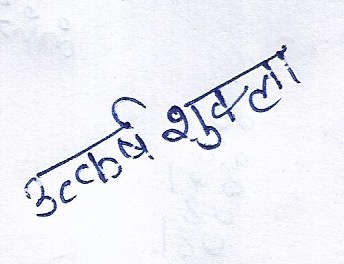 उत्कर्ष शुक्ला